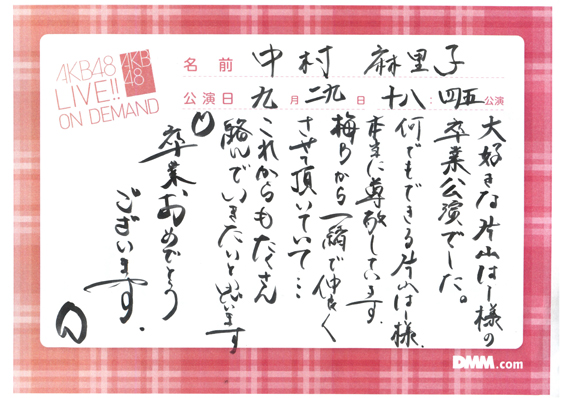 AKB48
LIVE!!
ON DEMAND
AKB
48
名前 中村 麻里子
公演日 九月二九日 十八:四五公演
大好きな片山はー様の
卒業公演でした。
何でもできる片山はー様、
本当に尊敬しています。
梅Bから一緒で仲良く
させて頂いていて…
これからもたくさん
絡んでいきたいと思います
卒業おめでとう
ございます.
DMM.com